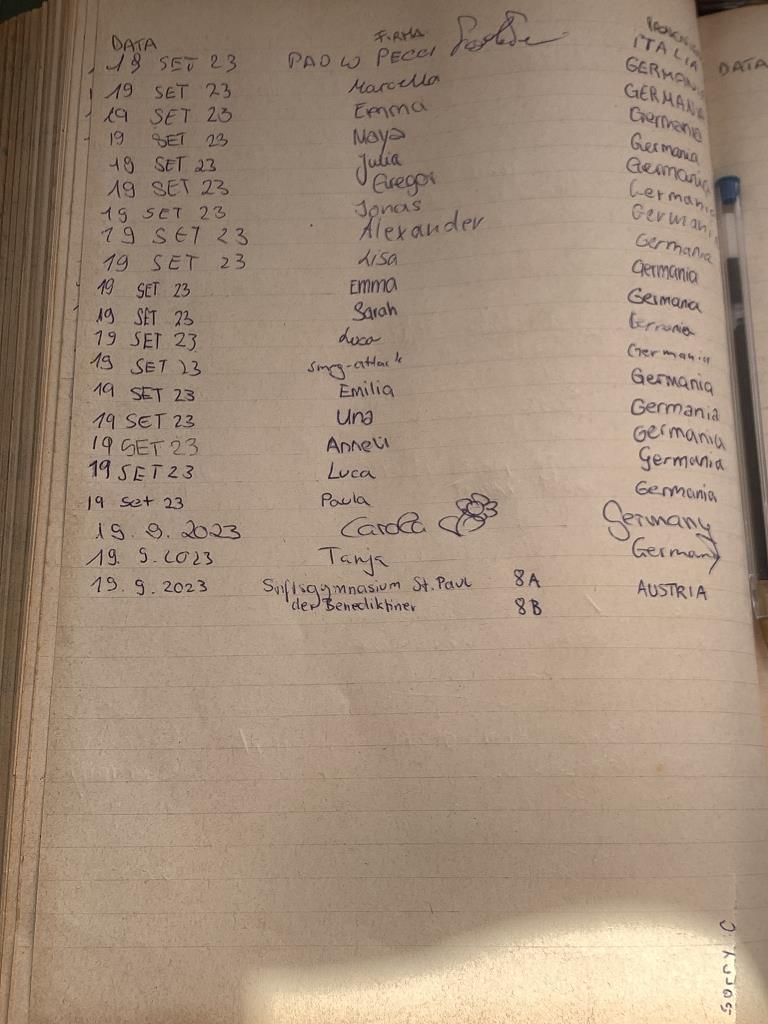 DATA FIRMA DATA
19 SET 23 PAOLO PECCI ITALIA
19 SET 23 Marcella GERMANIA
19 SET 23 Emma GERMANIA
19 SET 23 Maya Germania
19 SET 23 Julia Germania
19 SET 23 Gregor Germania
19 SET 23 Jonas Germania
19 SET 23 Alexander Germania
19 SET 23 Lisa Germania
19 SET 23 Emma Germania
19 SET 23 Sarah Germania
19 SET 23 Luca Germania
19 SET 23 Germania
19 SET 23 Emilia Germania
19 SET 23 Una Germania
19 SET 23 Anneli Germania
19 SET 23 Luca Germania
19 set 23 Paula Germania
19.9.2023 Carola Germany
19.9.2023 Tanja Germany
19.9.2023 Stiftsgymnasium St. Paul 8A AUSTRIA
der Benediktiner 8B
sorry :C